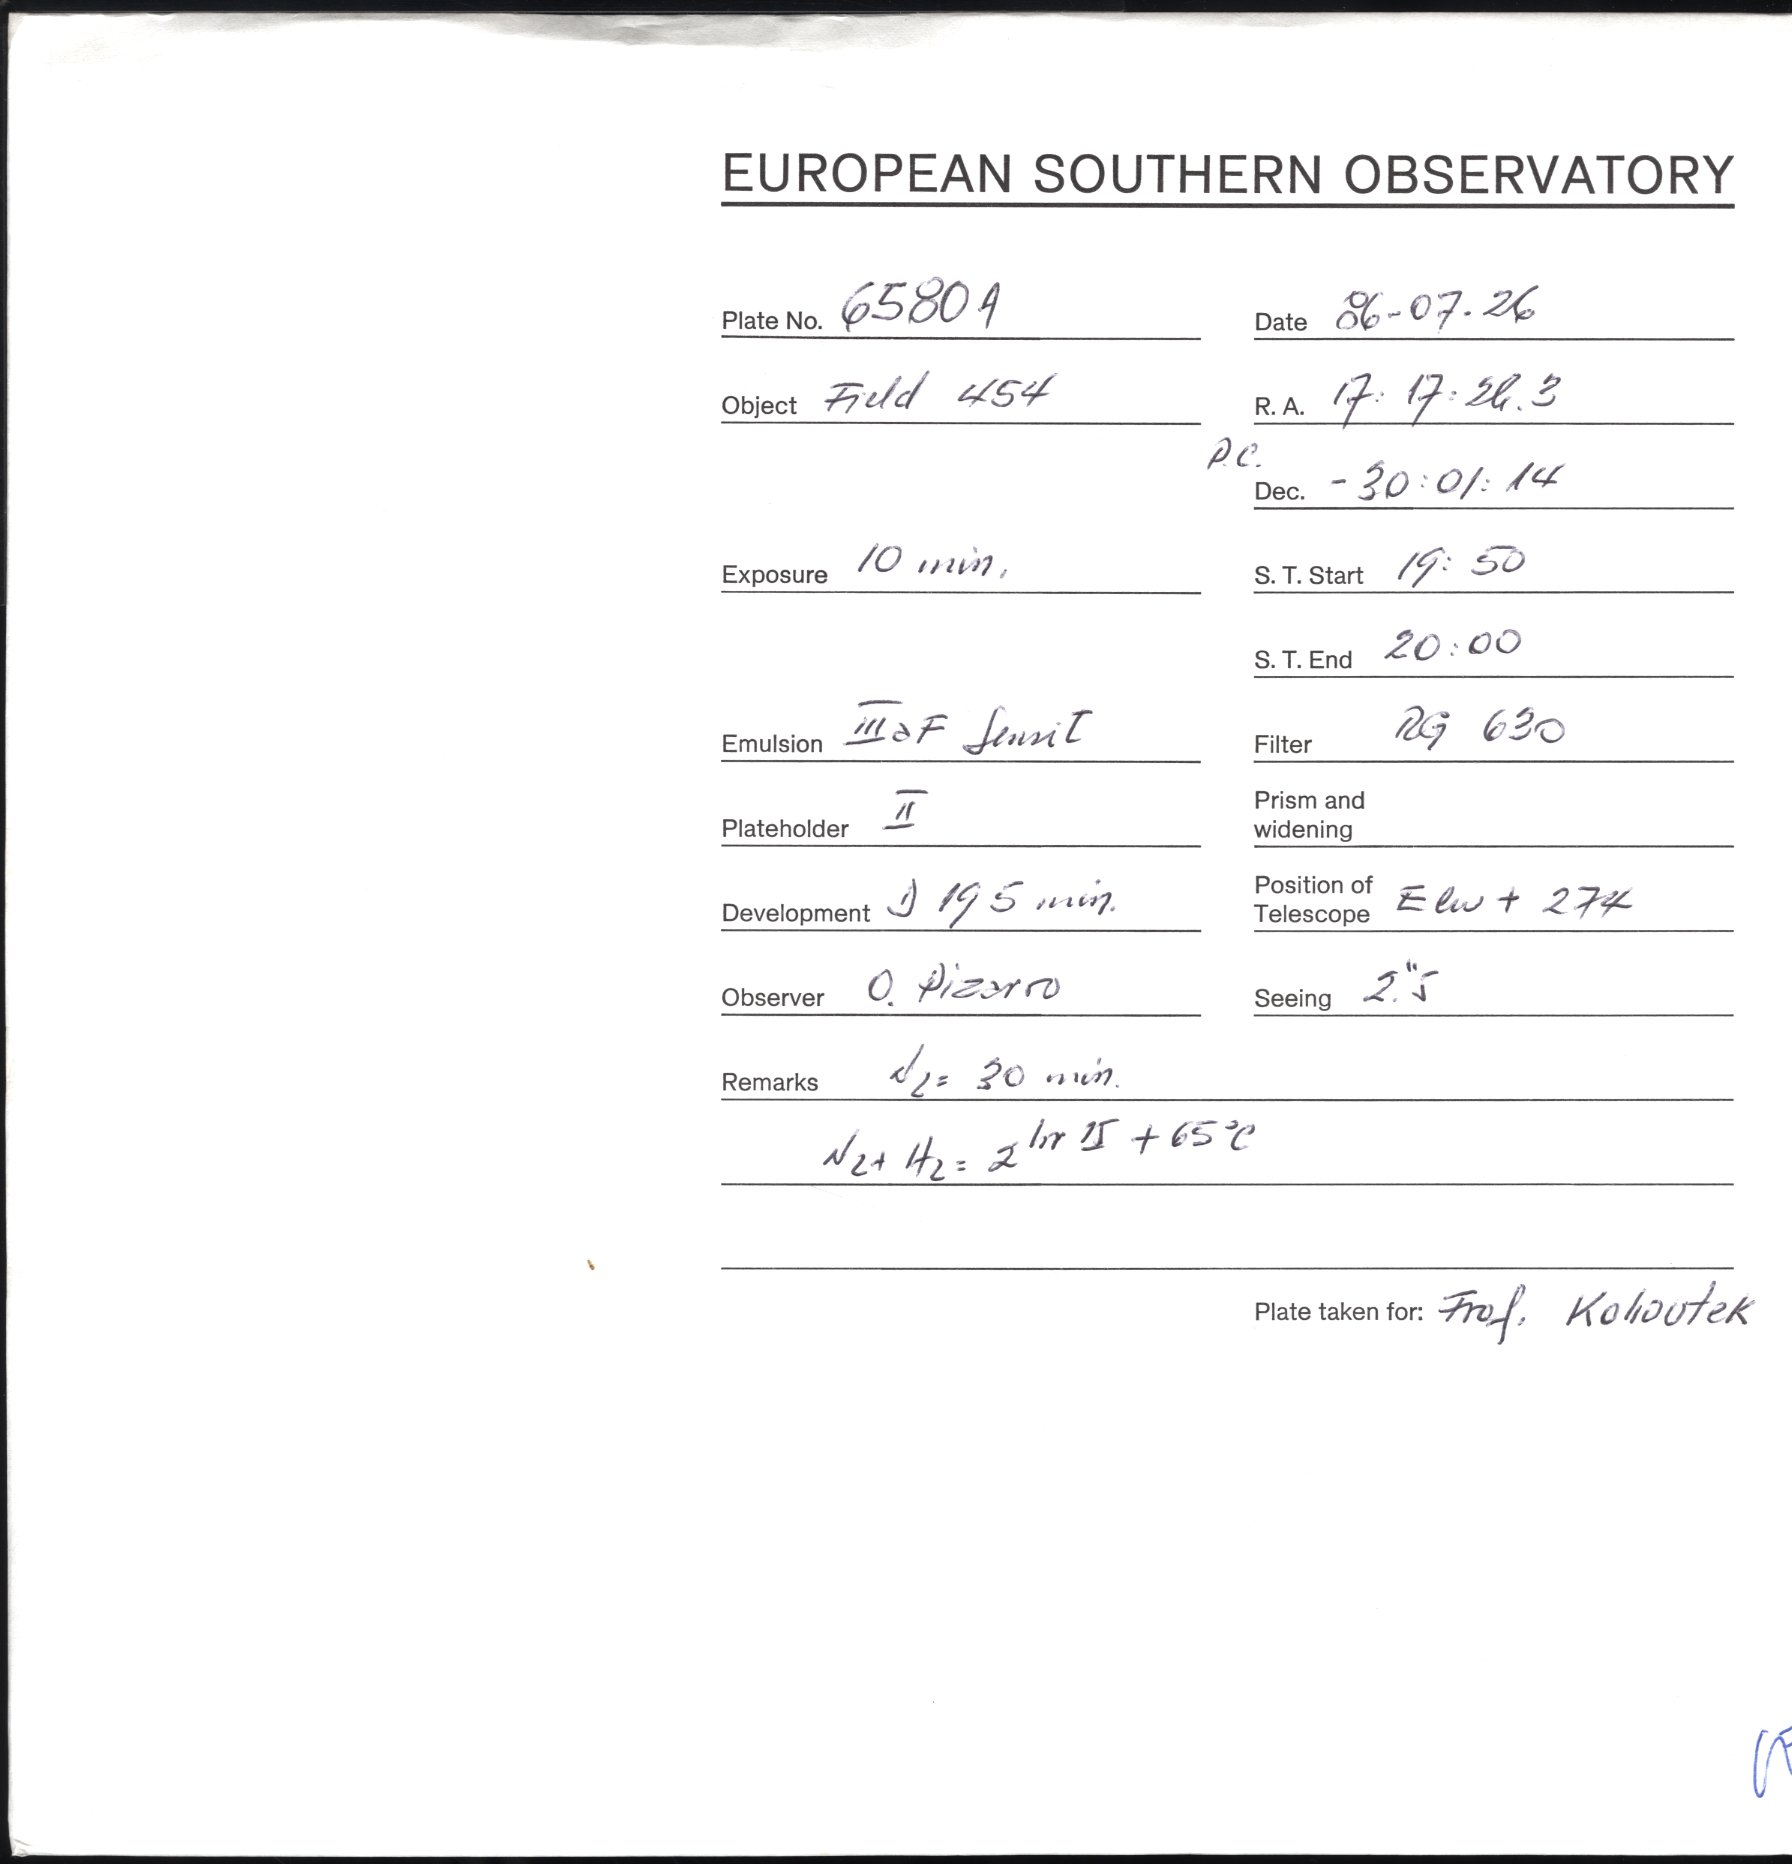 EUROPEAN SOUTHERN OBSERVATORY
Plate No. 6580A Date 86-07.26
Object Field 454 R. A. 17: 17:
P.C.
Dec. -30:01:14
Exposure 10 min. S. T. Start 19:50
S. T. End 20:00
Emulsion IIIaF Sensit Filter RG 630
Plateholder II Prism and
widening
Development D 19 5 min. Position of
Telescope + 274
Observer O. Pizarro Seeing 2."5
Remarks N2= 30 min.
N2+ H2= 2 hr 15 +65°C
Plate taken for: Prof. Kohoutek